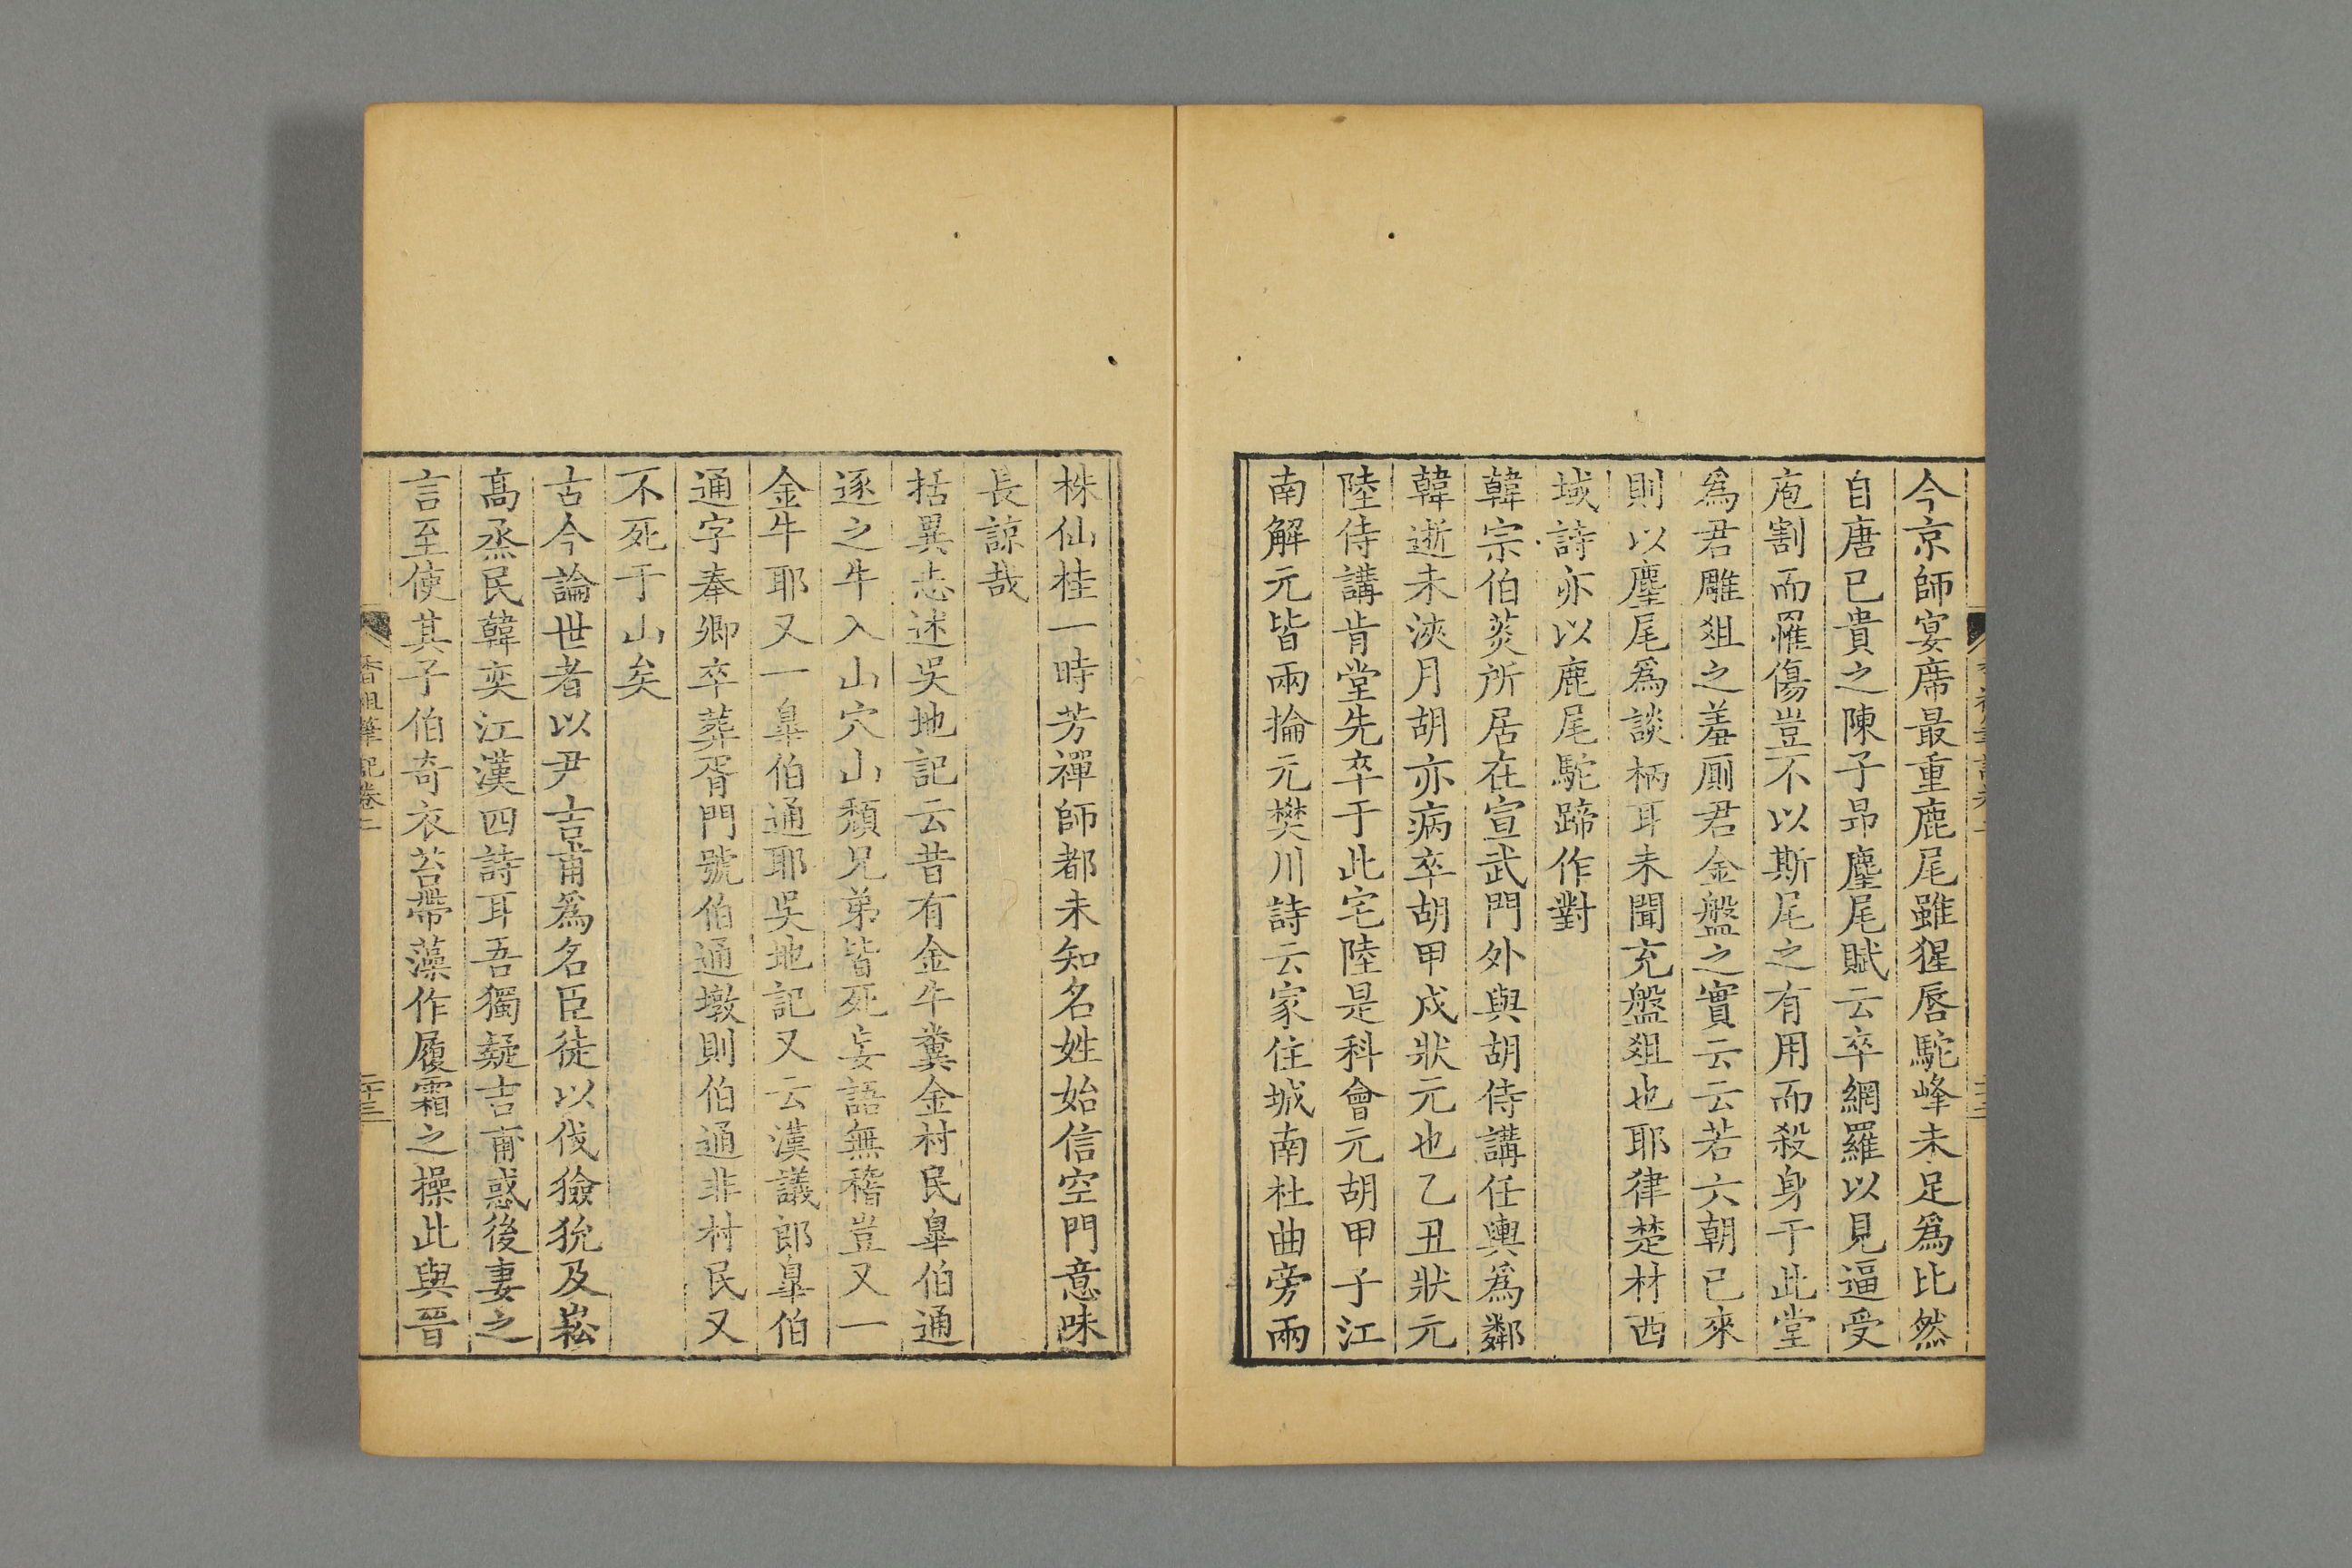 今京師宴席最重鹿尾雖猩唇駝峰未足爲比然
自唐已貴之陳子昻麈尾賦云卒網羅以見逼受
庖割而罹傷豈不以斯尾之有用而殺身于此堂
爲君雕俎之羞厠君金盤之實云云若六朝已來
則以麈尾爲談柄耳未聞充盤俎也耶律楚材西
域詩亦以鹿尾駝蹄作對
韓宗伯菼所居在宣武門外與胡侍講任輿爲鄰
韓逝未浹月胡亦病卒胡甲戍狀元也乙丑狀元
陸侍講肯堂先卒于此宅陸是科會元胡甲子江
南解元皆兩掄元樊川詩云家住城南杜曲旁兩
株仙桂一時芳禪師都未知名姓始信空門意味
長諒哉
括異志述吳地記云昔有金牛糞金村民臯伯通
逐之牛入山穴山頹兄弟皆死妄語無稽豈又一
金牛耶又一臯伯通耶吳地記又云漢議郎臯伯
通字奉卿卒葬胥門號伯通墩則伯通非村民又
不死于山矣
古今論世者以尹吉甫爲名臣徒以伐獫狁及崧
高烝民韓奕江漢四詩耳吾獨疑吉甫惑後妻之
言至使其子伯奇衣苔帶藻作履霜之操此與晉
香祖筆記卷二
二十三